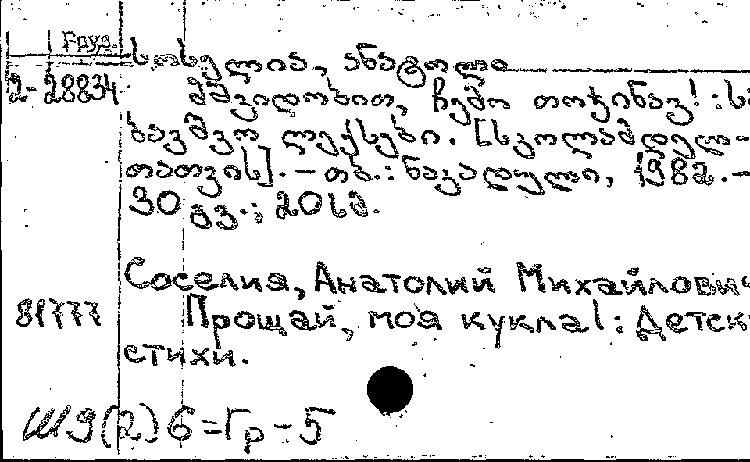 Груз.
სოსელია, ანატოლი
2-28834
მშვიდობით, ჩემო თოჯინავ! : სა
ბავშვო ლექსები. [სკოლამდელ-
თათვის]. — თბ. : ნაკადული, 1982. —
30 გვ. ; 20 სმ.
Соселия, Анатолий Михайлович
81777
Прощай, моя кукла! : Детски
стихи.
Ш9(2)6=Гр-5